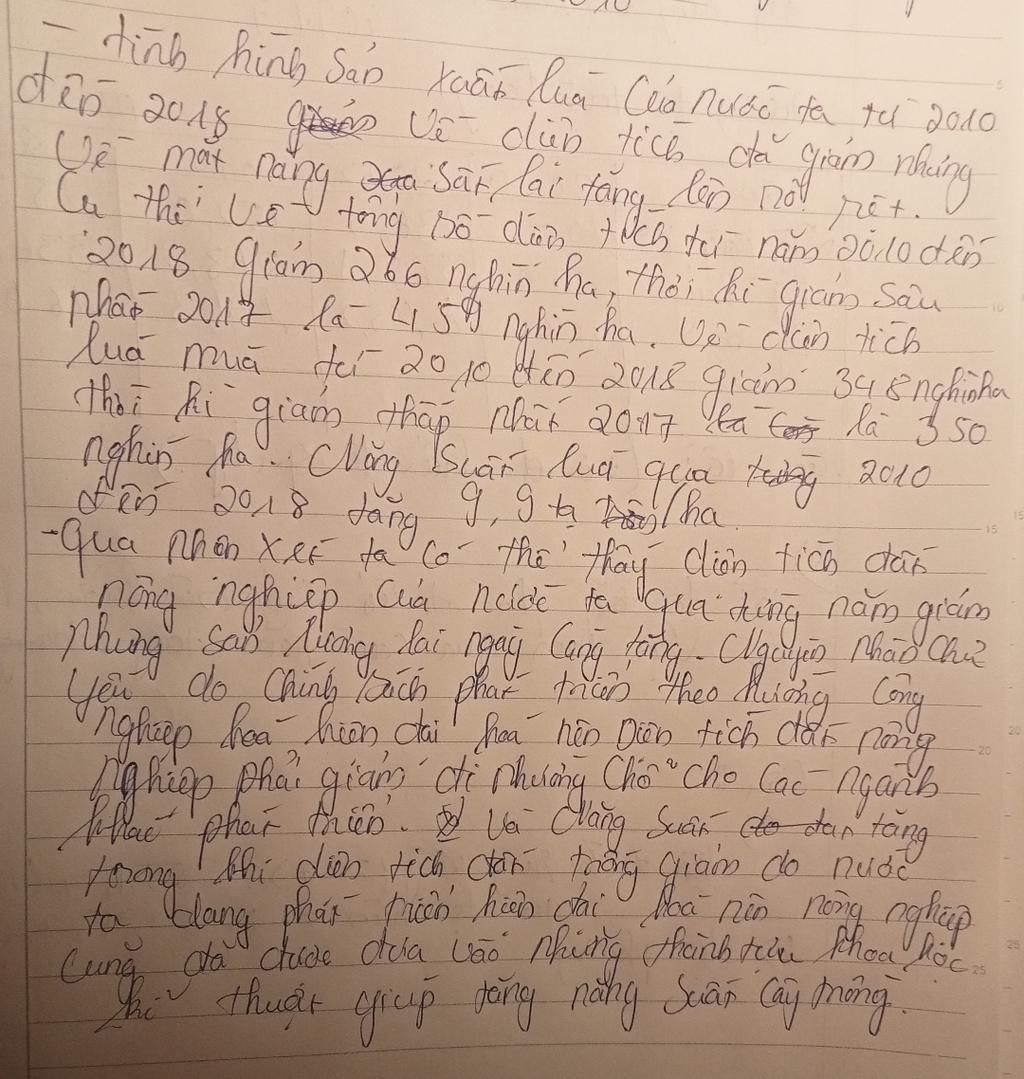 - tình hình sản xuất lúa của nước ta từ 2010
đến 2018 về diện tích đã giảm nhưng
Về mặt năng suất lại tăng lên nổi rệt.
Cụ thể về tổng số diện tích từ năm 2010 đến
2018 giảm 266 nghìn ha, thời kì giảm sâu
nhất 2017 là 459 nghìn ha. Về diện tích
lúa mùa từ 2010 đến 2018 giảm 348 nghìn ha
thời kì giảm thấp nhất 2017 là 350
nghìn ha. Năng suất lúa qua 2010
đến 2018 tăng 9,9 tạ /ha
- Qua nhận xét ta có thể thấy diện tích đất
nông nghiệp của nước ta qua từng năm giảm
nhưng sản lượng lại ngày càng tăng. Nguyên nhân chủ
yếu do chính sách phát triển theo hướng công
nghiệp hoá hiện đại hoá nên Diện tích đất nông
nghiệp phải giảm đi nhường chỗ cho các ngành
khác phát triển. Và Năng suất tăng
trong khi diện tích đất trồng giảm do nước
ta đang phát triển hiện đại hoá nên nông nghiệp
cũng đã được đưa vào những thành tựu khoa học
kĩ thuật giúp tăng năng suất cây trồng.